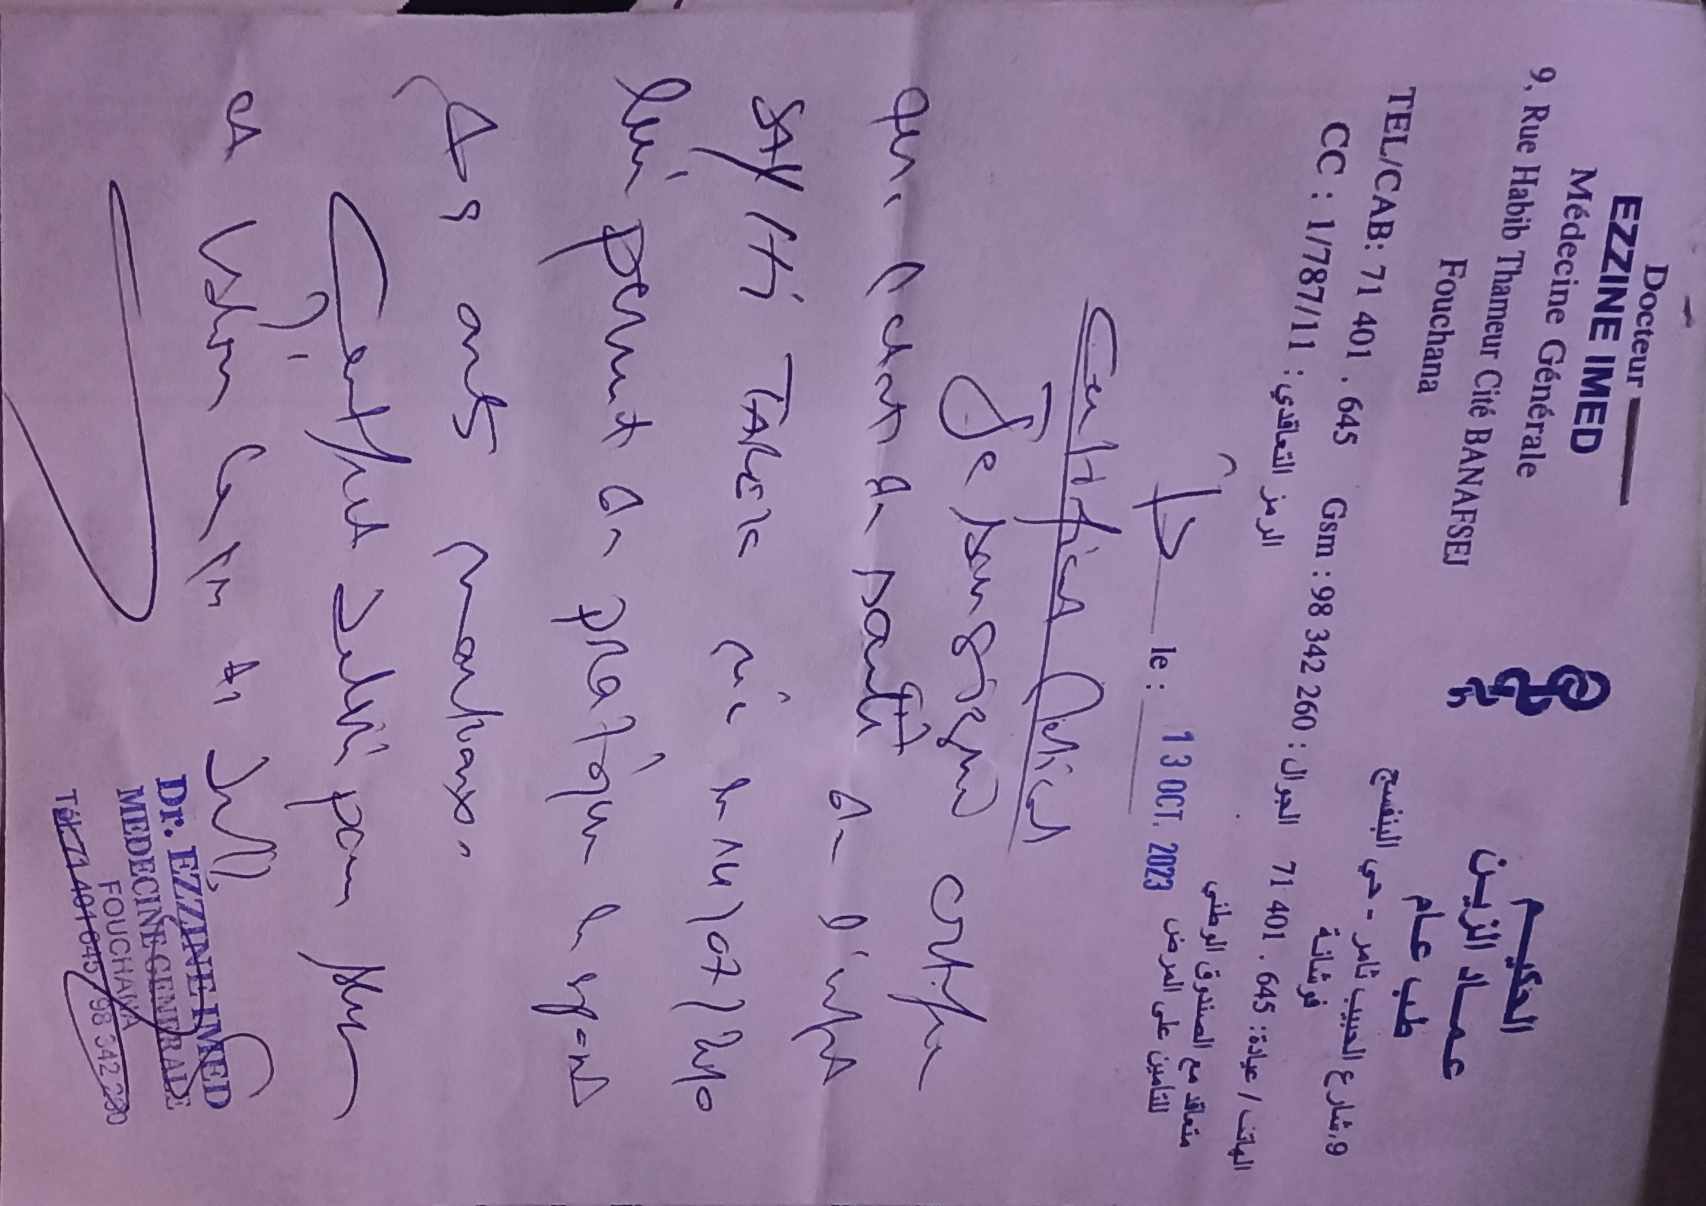 Docteur
EZZINE IMED
Médecine Générale
9, Rue Habib Thameur Cité BANAFSEJ
Fouchana
TEL/CAB: 71 401 . 645 Gsm : 98 342 260
CC : 1/787/11
الحكيـــم
عمـــاد الزيـــن
طب عــام
9،شارع الحبيب ثامر - حي البنفسج
فوشانة
الهاتف / عيادة: 645 . 401 71 الجوال : 260 342 98
الرمز التعاقدي :
متعاقد مع الصندوق الوطني
للتامين على المرض
le : 13 OCT. 2023
Certificat Médical
Je soussigné certifie
que l'état de santé de l'enfant
SAYHI né le 07
lui permet de pratiquer le
arts martiaux.
Certificat délivré pour servir
et valoir ce que de droit
Dr. EZZINE IMED
MEDECINE GENERALE
FOUCHANA
Tél: 71 401 645 / 98 342 260